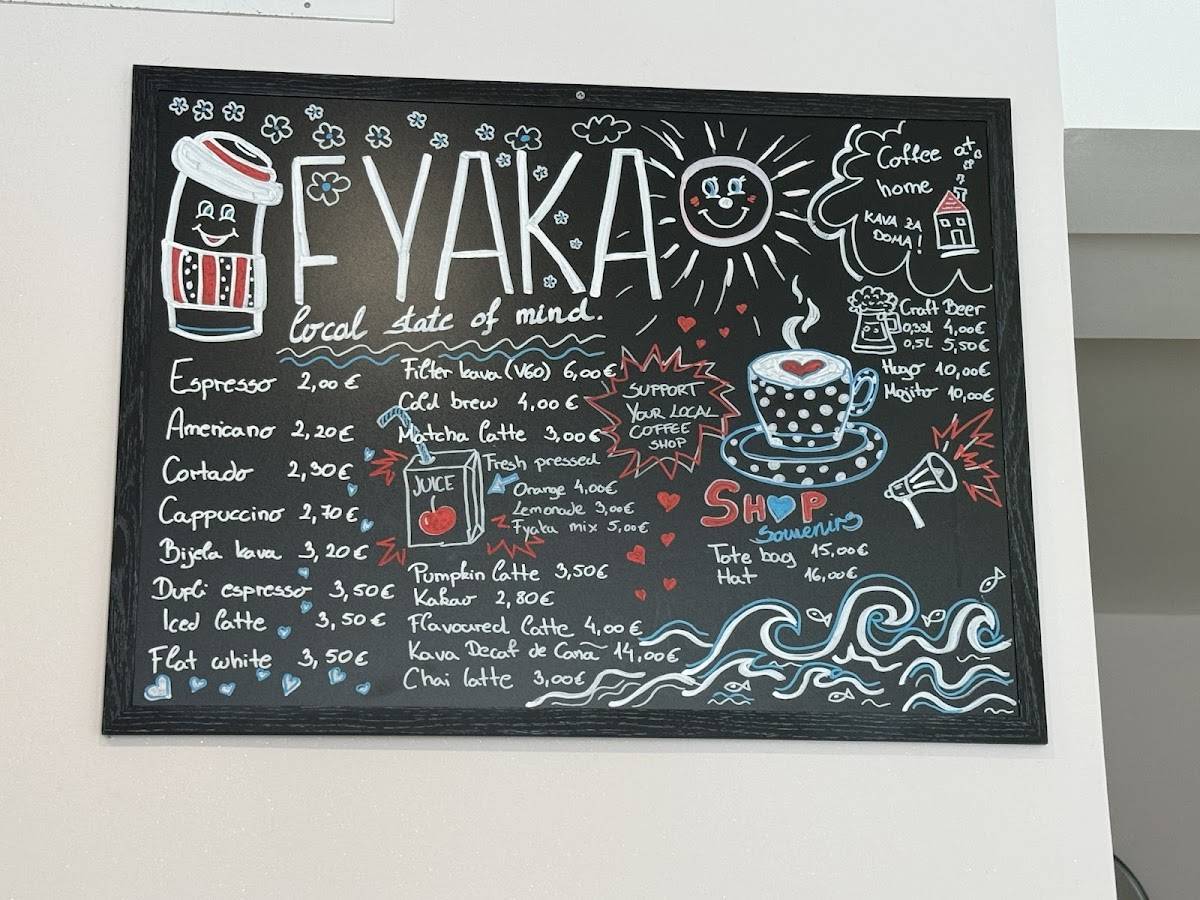 FYAKA
local state of mind.
Coffee at
home
KAVA ZA
DOMA!
Espresso 2,00 €
Americano 2,20 €
Cortado 2,30 €
Cappuccino 2,70 €
Bijela kava 3,20 €
Dupli espresso 3,50 €
Iced latte 3,50 €
Flat white 3,50 €
Filter kava (V60) 6,00 €
Cold brew 4,00 €
Matcha latte 3,00 €
JUICE
Fresh pressed
Orange 4,00 €
Lemonade 3,00 €
Fyaka mix 5,00 €
Pumpkin latte 3,50 €
Kakao 2,80 €
Flavoured latte 4,00 €
Kava Decaf de Caña 14,00 €
Chai latte 3,00 €
SUPPORT
YOUR LOCAL
COFFEE
SHOP
Craft Beer
0,33l 4,00 €
0,5l 5,50 €
Hugo 10,00 €
Mojito 10,00 €
SHOP
Souvenirs
Tote bag 15,00 €
Hat 16,00 €